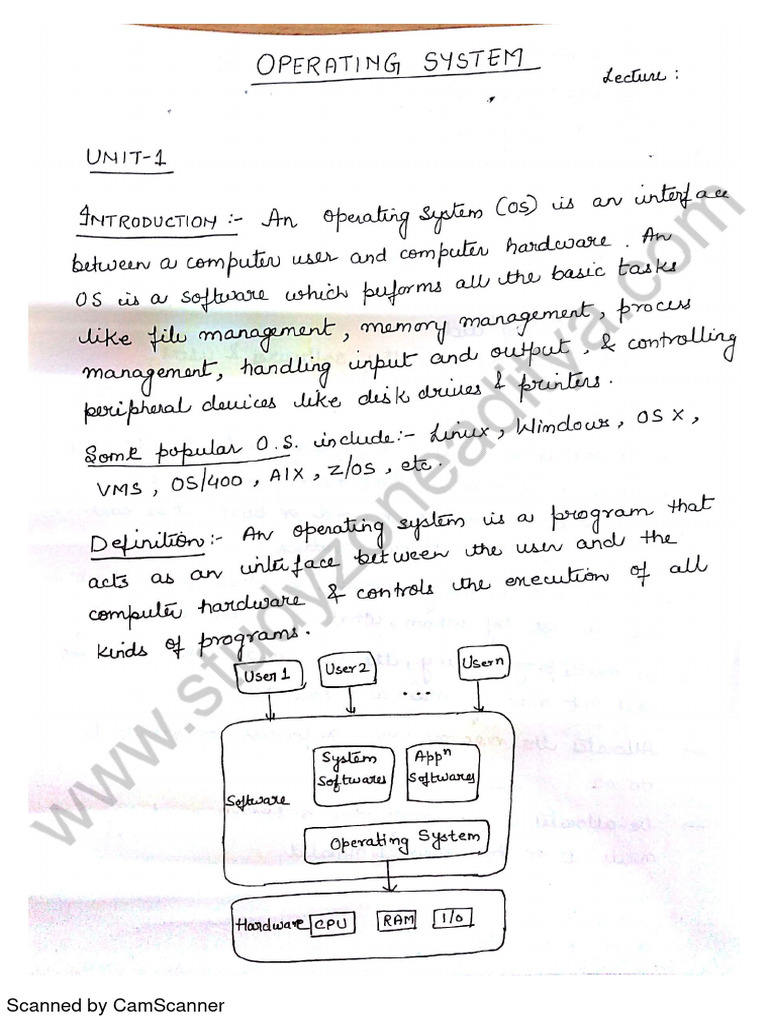 OPERATING SYSTEM
Lecture :
UNIT-1
INTRODUCTION :- An operating system (OS) is an interface
between a computer user and computer hardware. An
OS is a software which performs all the basic tasks
like file management, memory management, process
management, handling input and output, & controlling
peripheral devices like disk drives & printers.
Some popular O.S. include:- Linux, Windows, OS X,
VMS, OS/400, AIX, z/OS, etc.
Definition :- An operating system is a program that
acts as an interface between the user and the
computer hardware & controls the execution of all
kinds of programs.
User 1 User 2 ... User n
System Softwares
Appn Softwares
Software
Operating System
Hardware CPU RAM I/O
www.studyzoneaditya.com
Scanned by CamScanner